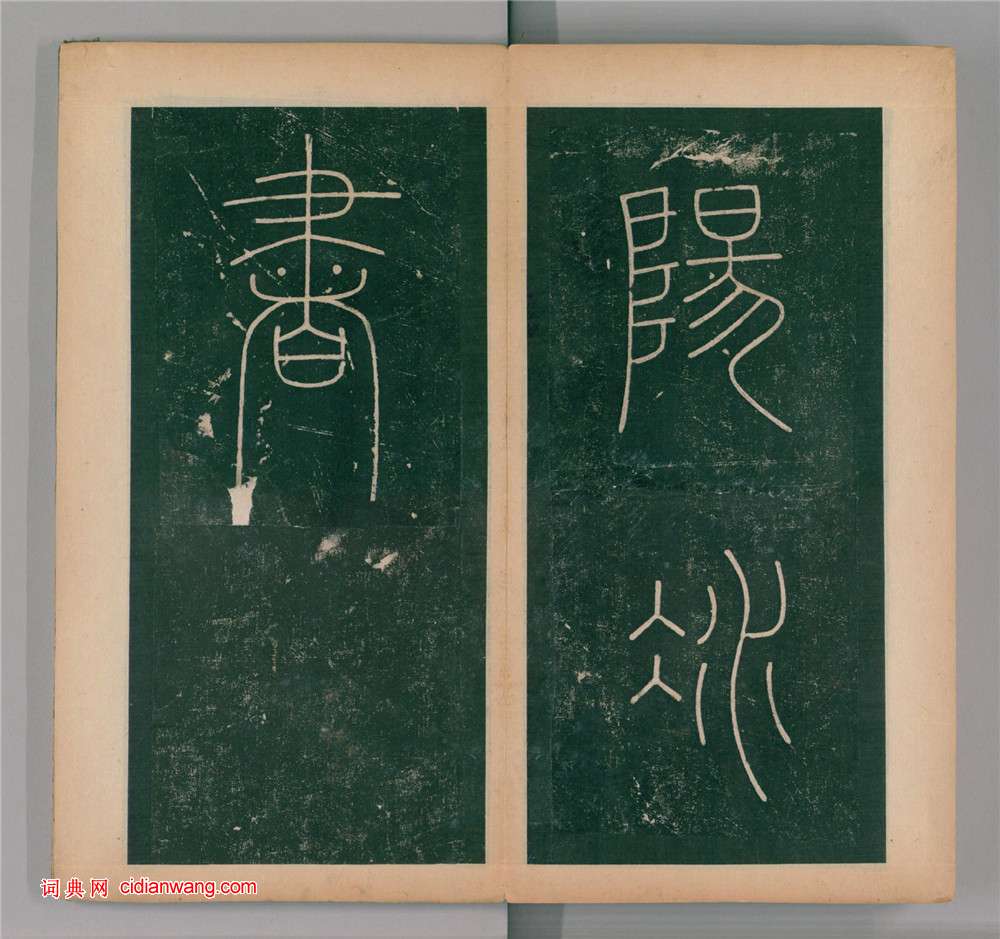 陽冰
書
词典网 cidianwang.com